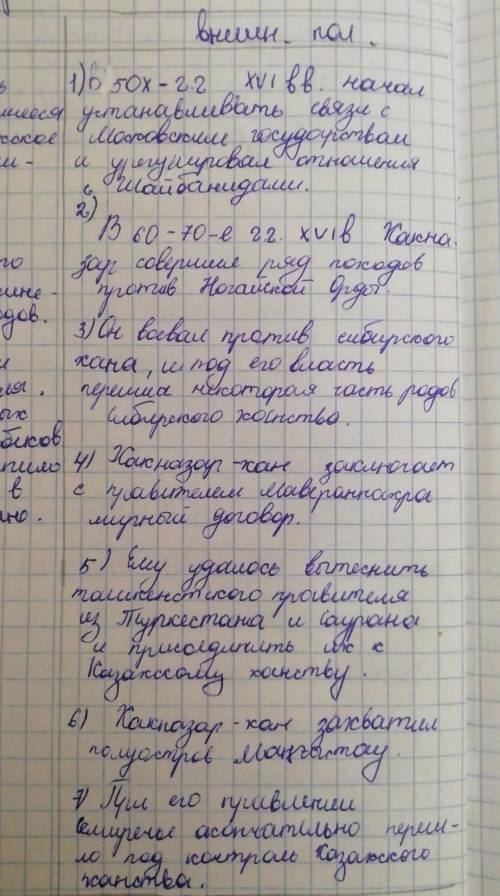 внешн. пол.
1) В 50х-г.г XVI вв. начал
устанавливать связи с
Московским государством
и урегулировал отношения
с Шайбанидами.
2)
В 60-70-е г.г. XVI в Хакна
зар совершил ряд походов
против Ногайской Орды.
3) Он воевал против сибирского
хана, и под его власть
перешла некоторая часть родов
Сибирского ханства.
4) Хакназар-хан заключает
с правителем Мавераннахра
мирный договор.
5) Ему удалось вытеснить
ташкентского правителя
из Туркестана и Саурана
и присоединить их к
Казахскому ханству.
6) Хакназар-хан захватил
полуостров Маңғыстау.
7) При его правлении
Семиречье окончательно переш-
ло под контроль Казахского
ханства.
ского
ши-
го
сине-
одов.
и
ля.
ых
беков
пило
в
но.